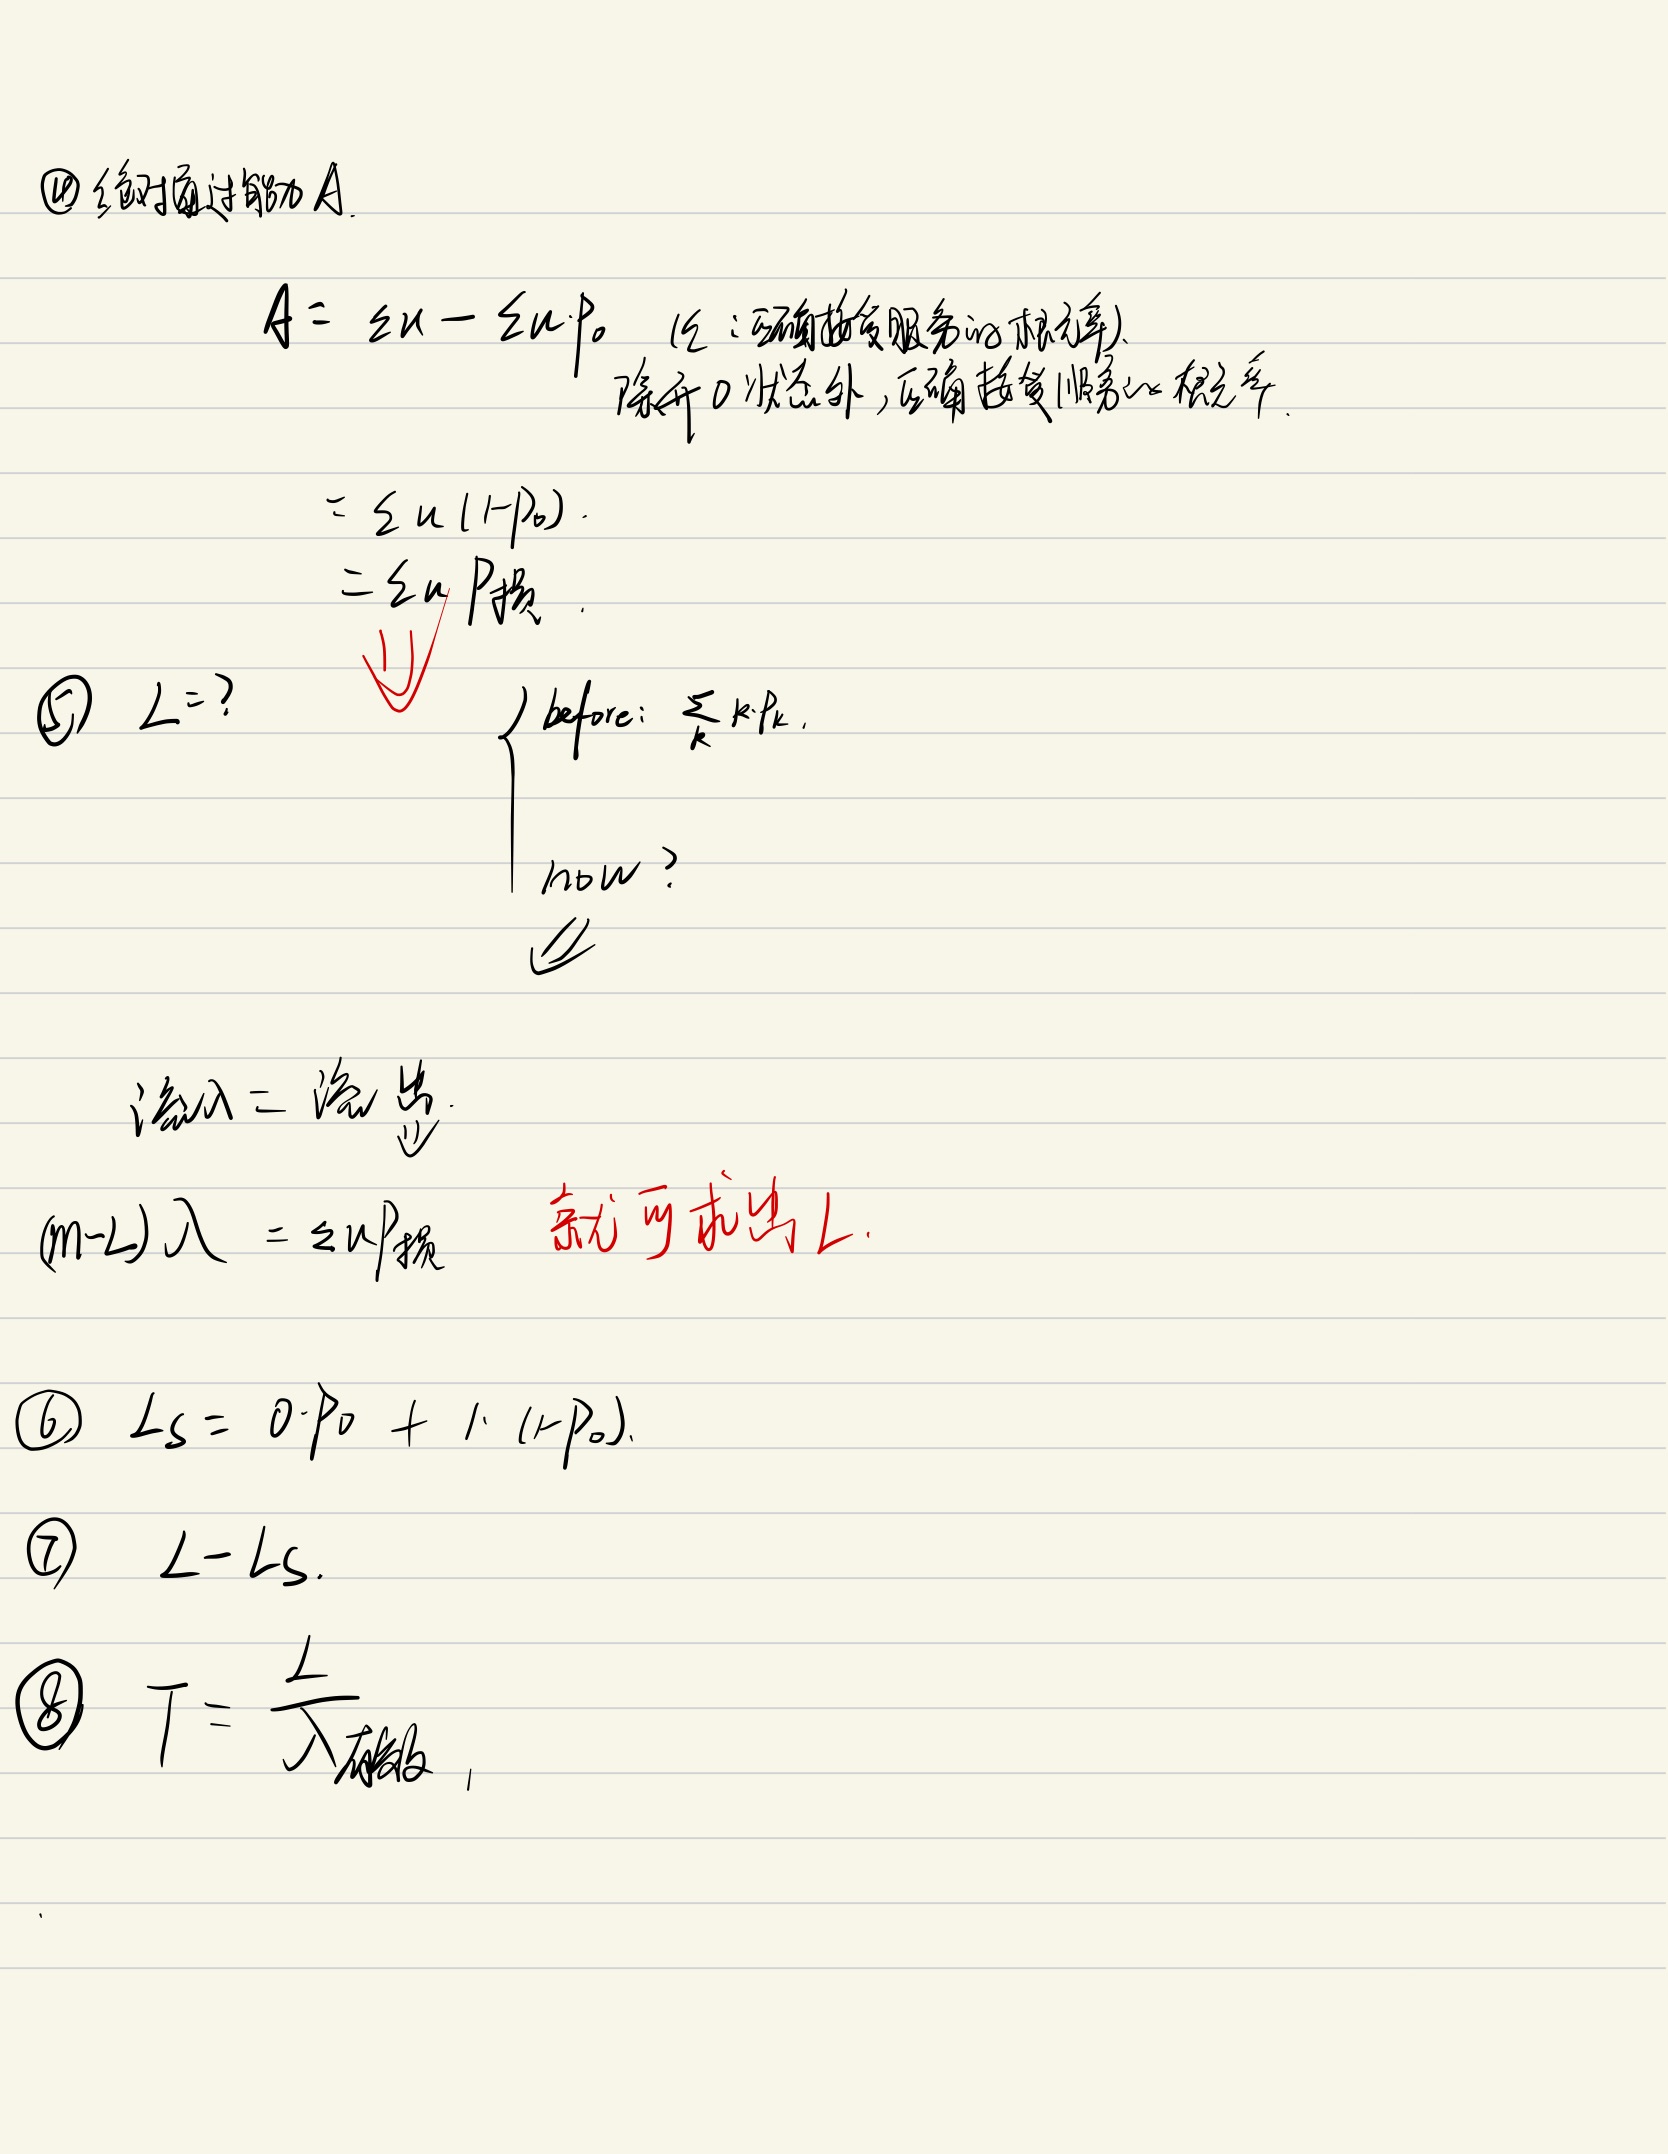 ④ 绝对通过能力 A.
A = εu - εu·P₀ (ε：正确接受服务的概率).
除开0状态外，正确接受服务的概率.
= εu(1-P₀).
= εu P损.
⑤ L=?
before: Σ_k k·Pₖ.
now?
流入 = 流出.
(m-L)λ = εuP损 就可求出L.
⑥ Ls = 0·P₀ + 1·(1-P₀).
⑦ L-Ls.
⑧ T = L/λ有效,